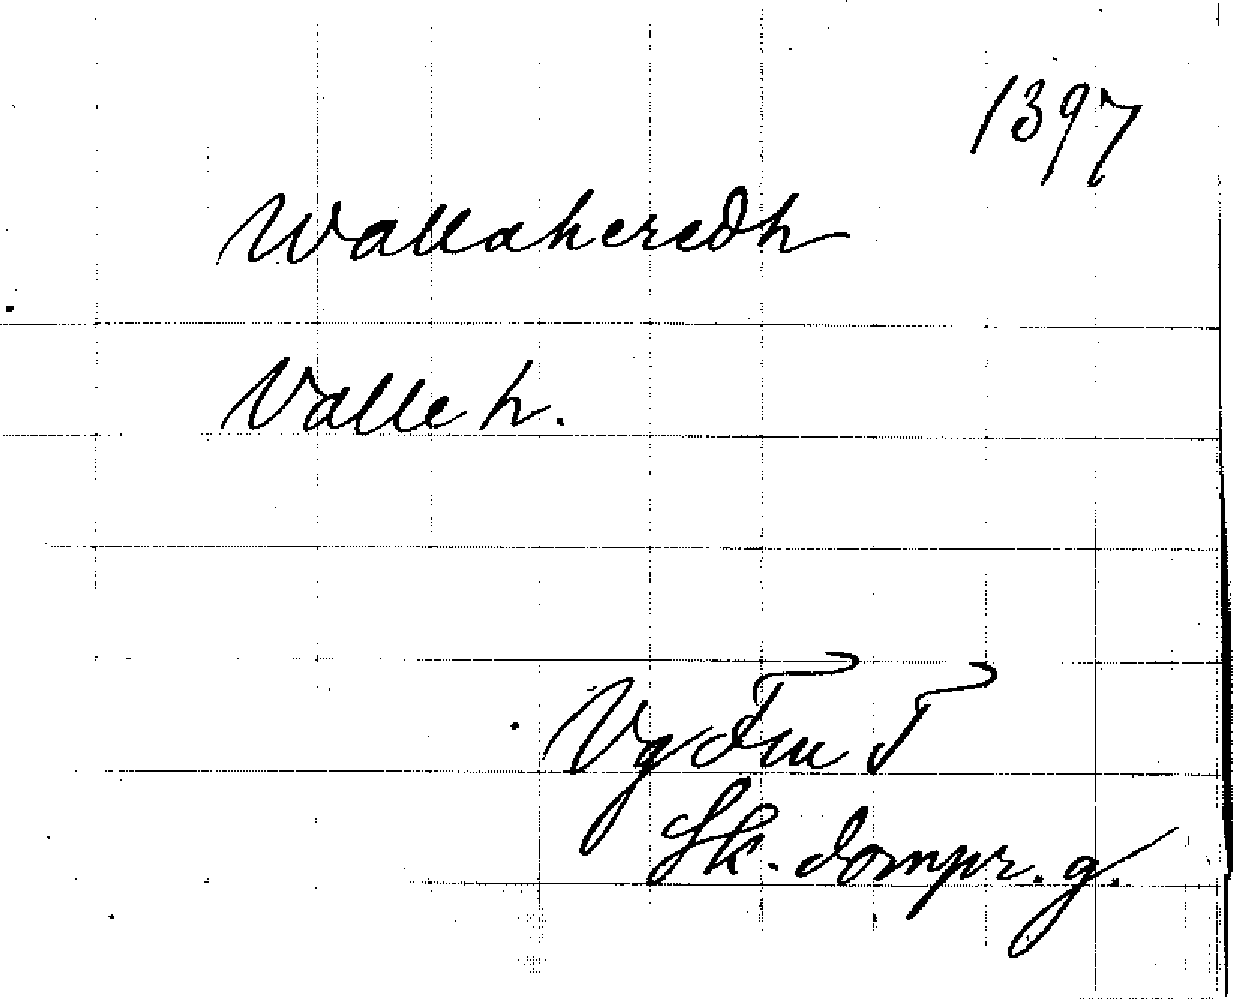 1397
Wallahæredh
Valle h.
Vg Fm T
Sk. dompr. g.